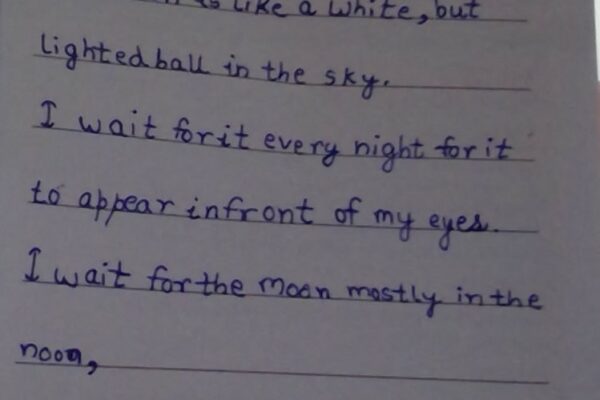 like a white, but
lighted ball in the sky.
I wait for it every night for it
to appear infront of my eyes.
I wait for the moon mostly in the
noon,